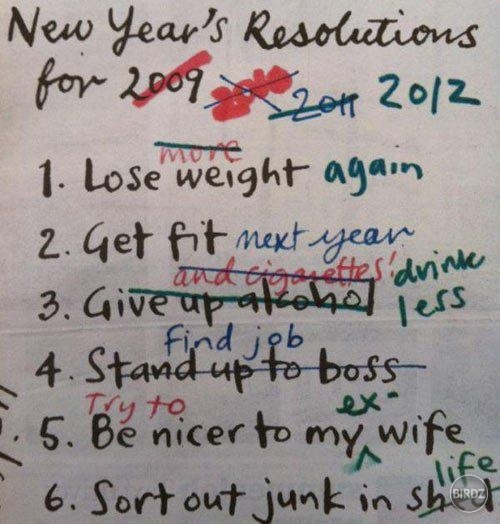 New Year's Resolutions
for 2009 2010 2011 2012
more
1. Lose weight again
2. Get fit next year
and cigarettes! drink
3. Give up alcohol less
find job
4. Stand up to boss
Try to ex-
5. Be nicer to my wife
life
6. Sort out junk in
BIRDZ